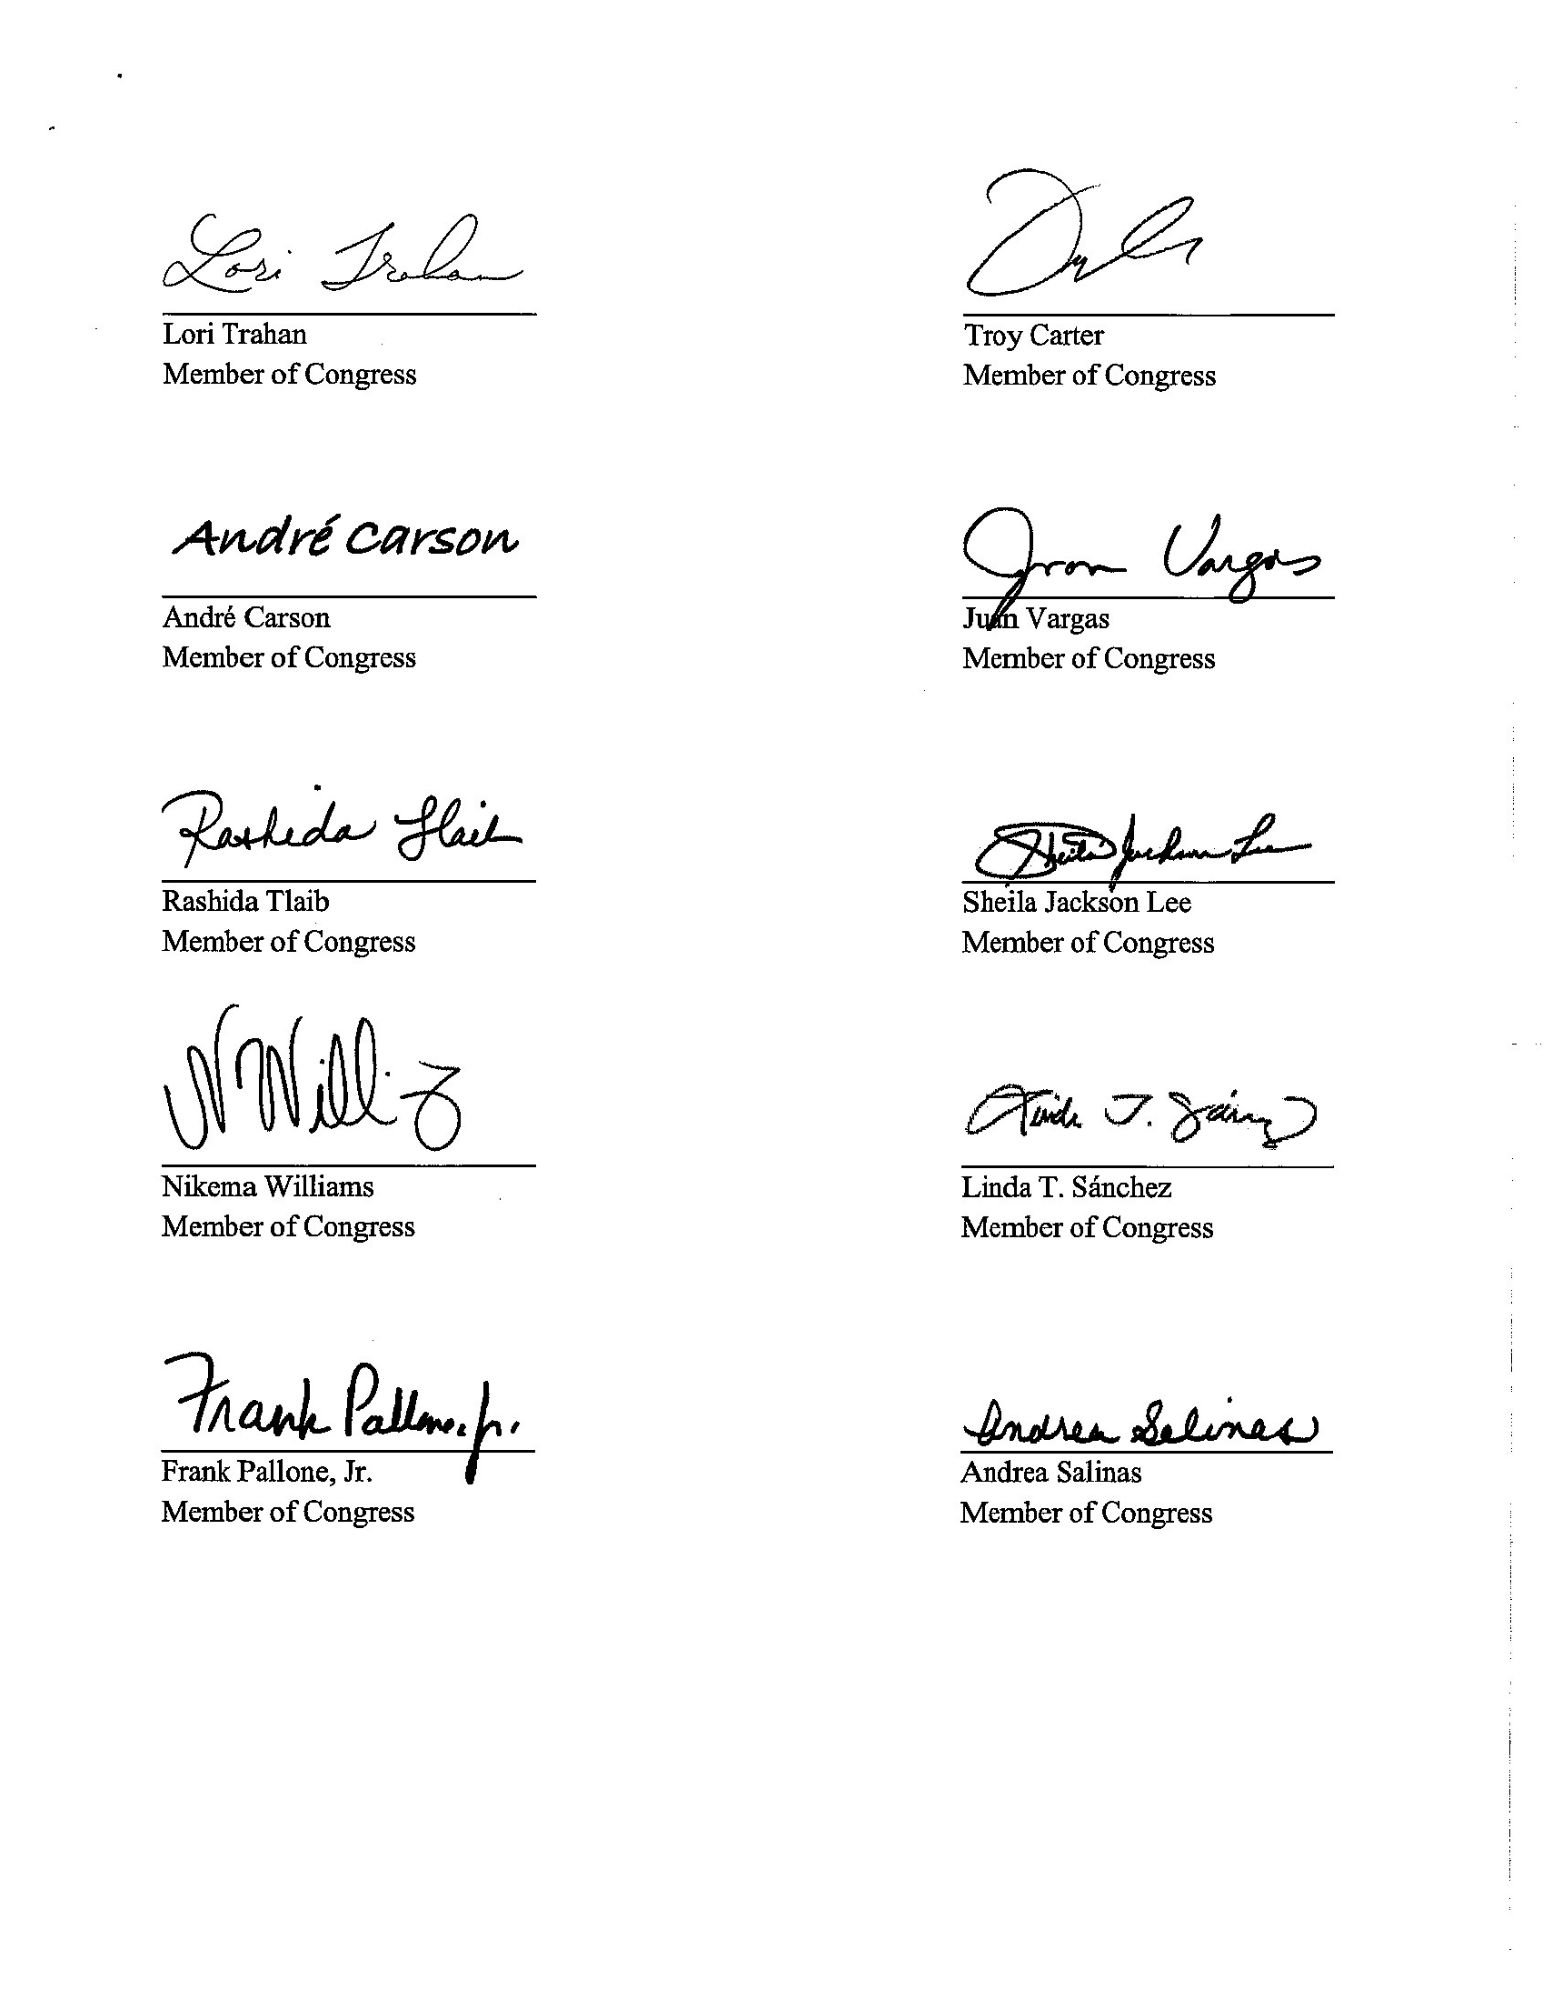 Lori Trahan
Lori Trahan
Member of Congress
Troy Carter
Member of Congress
André Carson
André Carson
Member of Congress
Juan Vargas
Juan Vargas
Member of Congress
Rashida Tlaib
Rashida Tlaib
Member of Congress
Sheila Jackson Lee
Sheila Jackson Lee
Member of Congress
N Willi
Nikema Williams
Member of Congress
Linda T. Sánchez
Linda T. Sánchez
Member of Congress
Frank Pallone, Jr.
Frank Pallone, Jr.
Member of Congress
Andrea Salinas
Andrea Salinas
Member of Congress